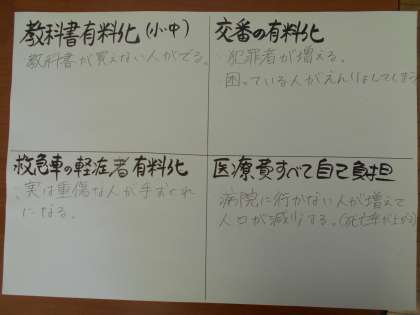 教科書有料化(小・中)
教科書が買えない人がでる。
交番の有料化
・犯罪者が増える。
困っている人がえんりょしてしまう
救急車の軽症者有料化
・実は重傷な人が手おくれ
になる。
医療費すべて自己負担
病院に行かない人が増えて
人口が減少する。(死亡率が上がる)